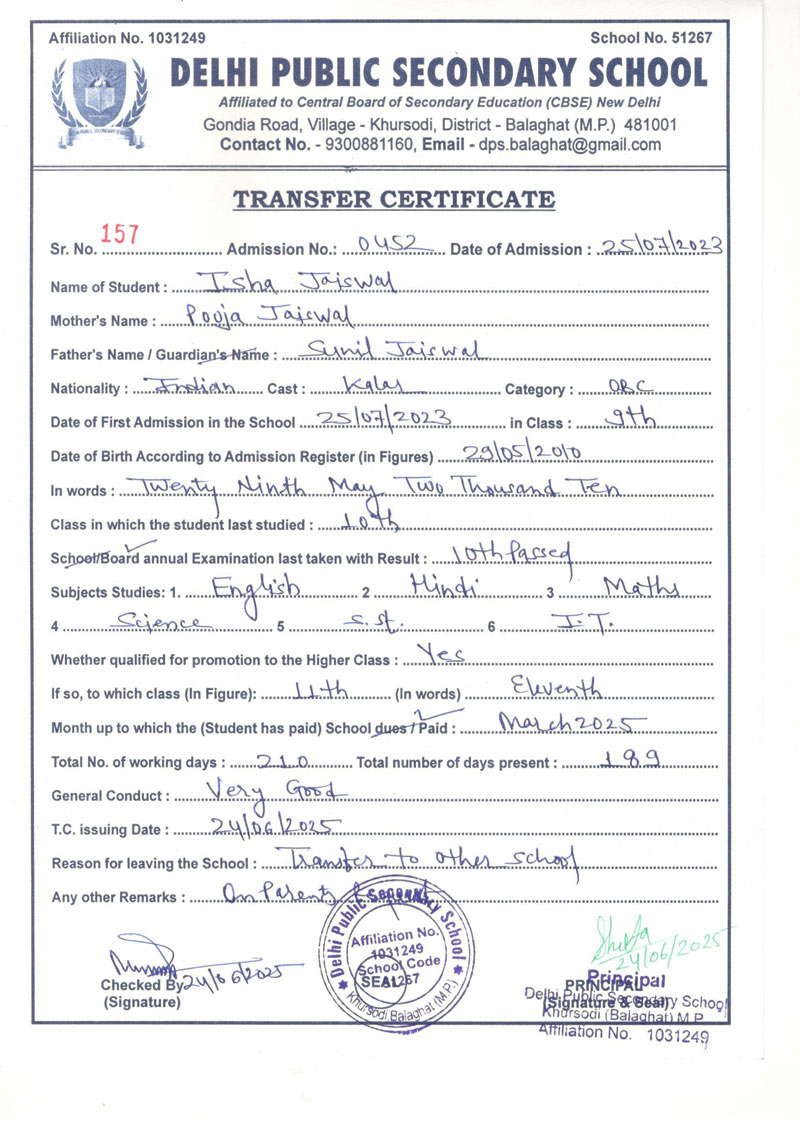 Affiliation No. 1031249 School No. 51267
DELHI PUBLIC SECONDARY SCHOOL
Affiliated to Central Board of Secondary Education (CBSE) New Delhi
Gondia Road, Village - Khursodi, District - Balaghat (M.P.) 481001
Contact No. - 9300881160, Email - dps.balaghat@gmail.com
TRANSFER CERTIFICATE
Sr. No. 157 Admission No.: 0452 Date of Admission : 25/07/2023
Name of Student : Isha Jaiswal
Mother's Name : Pooja Jaiswal
Father's Name / Guardian's Name : Sunil Jaiswal
Nationality : Indian Cast : Kalar Category : OBC
Date of First Admission in the School 25/07/2023 in Class : 9th
Date of Birth According to Admission Register (in Figures) 29/05/2010
In words : Twenty Ninth May Two Thousand Ten
Class in which the student last studied : 10th
School/Board annual Examination last taken with Result : 10th Passed
Subjects Studies: 1. English 2 Hindi 3 Maths
4 Science 5 S.St. 6 I.T.
Whether qualified for promotion to the Higher Class : Yes
If so, to which class (In Figure): 11th (In words) Eleventh
Month up to which the (Student has paid) School dues / Paid : March 2025
Total No. of working days : 210 Total number of days present : 189
General Conduct : Very Good
T.C. issuing Date : 24/06/2025
Reason for leaving the School : Transfer to other school
Any other Remarks : On Parents
Delhi Public Secondary School
Affiliation No.
1031249
School Code
51267
SEAL
Khursodi, Balaghat (M.P.)
24/06/2025
Checked By
(Signature)
24/06/2025
Principal
PRINCIPAL
Delhi Public Secondary School
(Signature & Seal)
Khursodi (Balaghat) M.P.
Affiliation No. 1031249